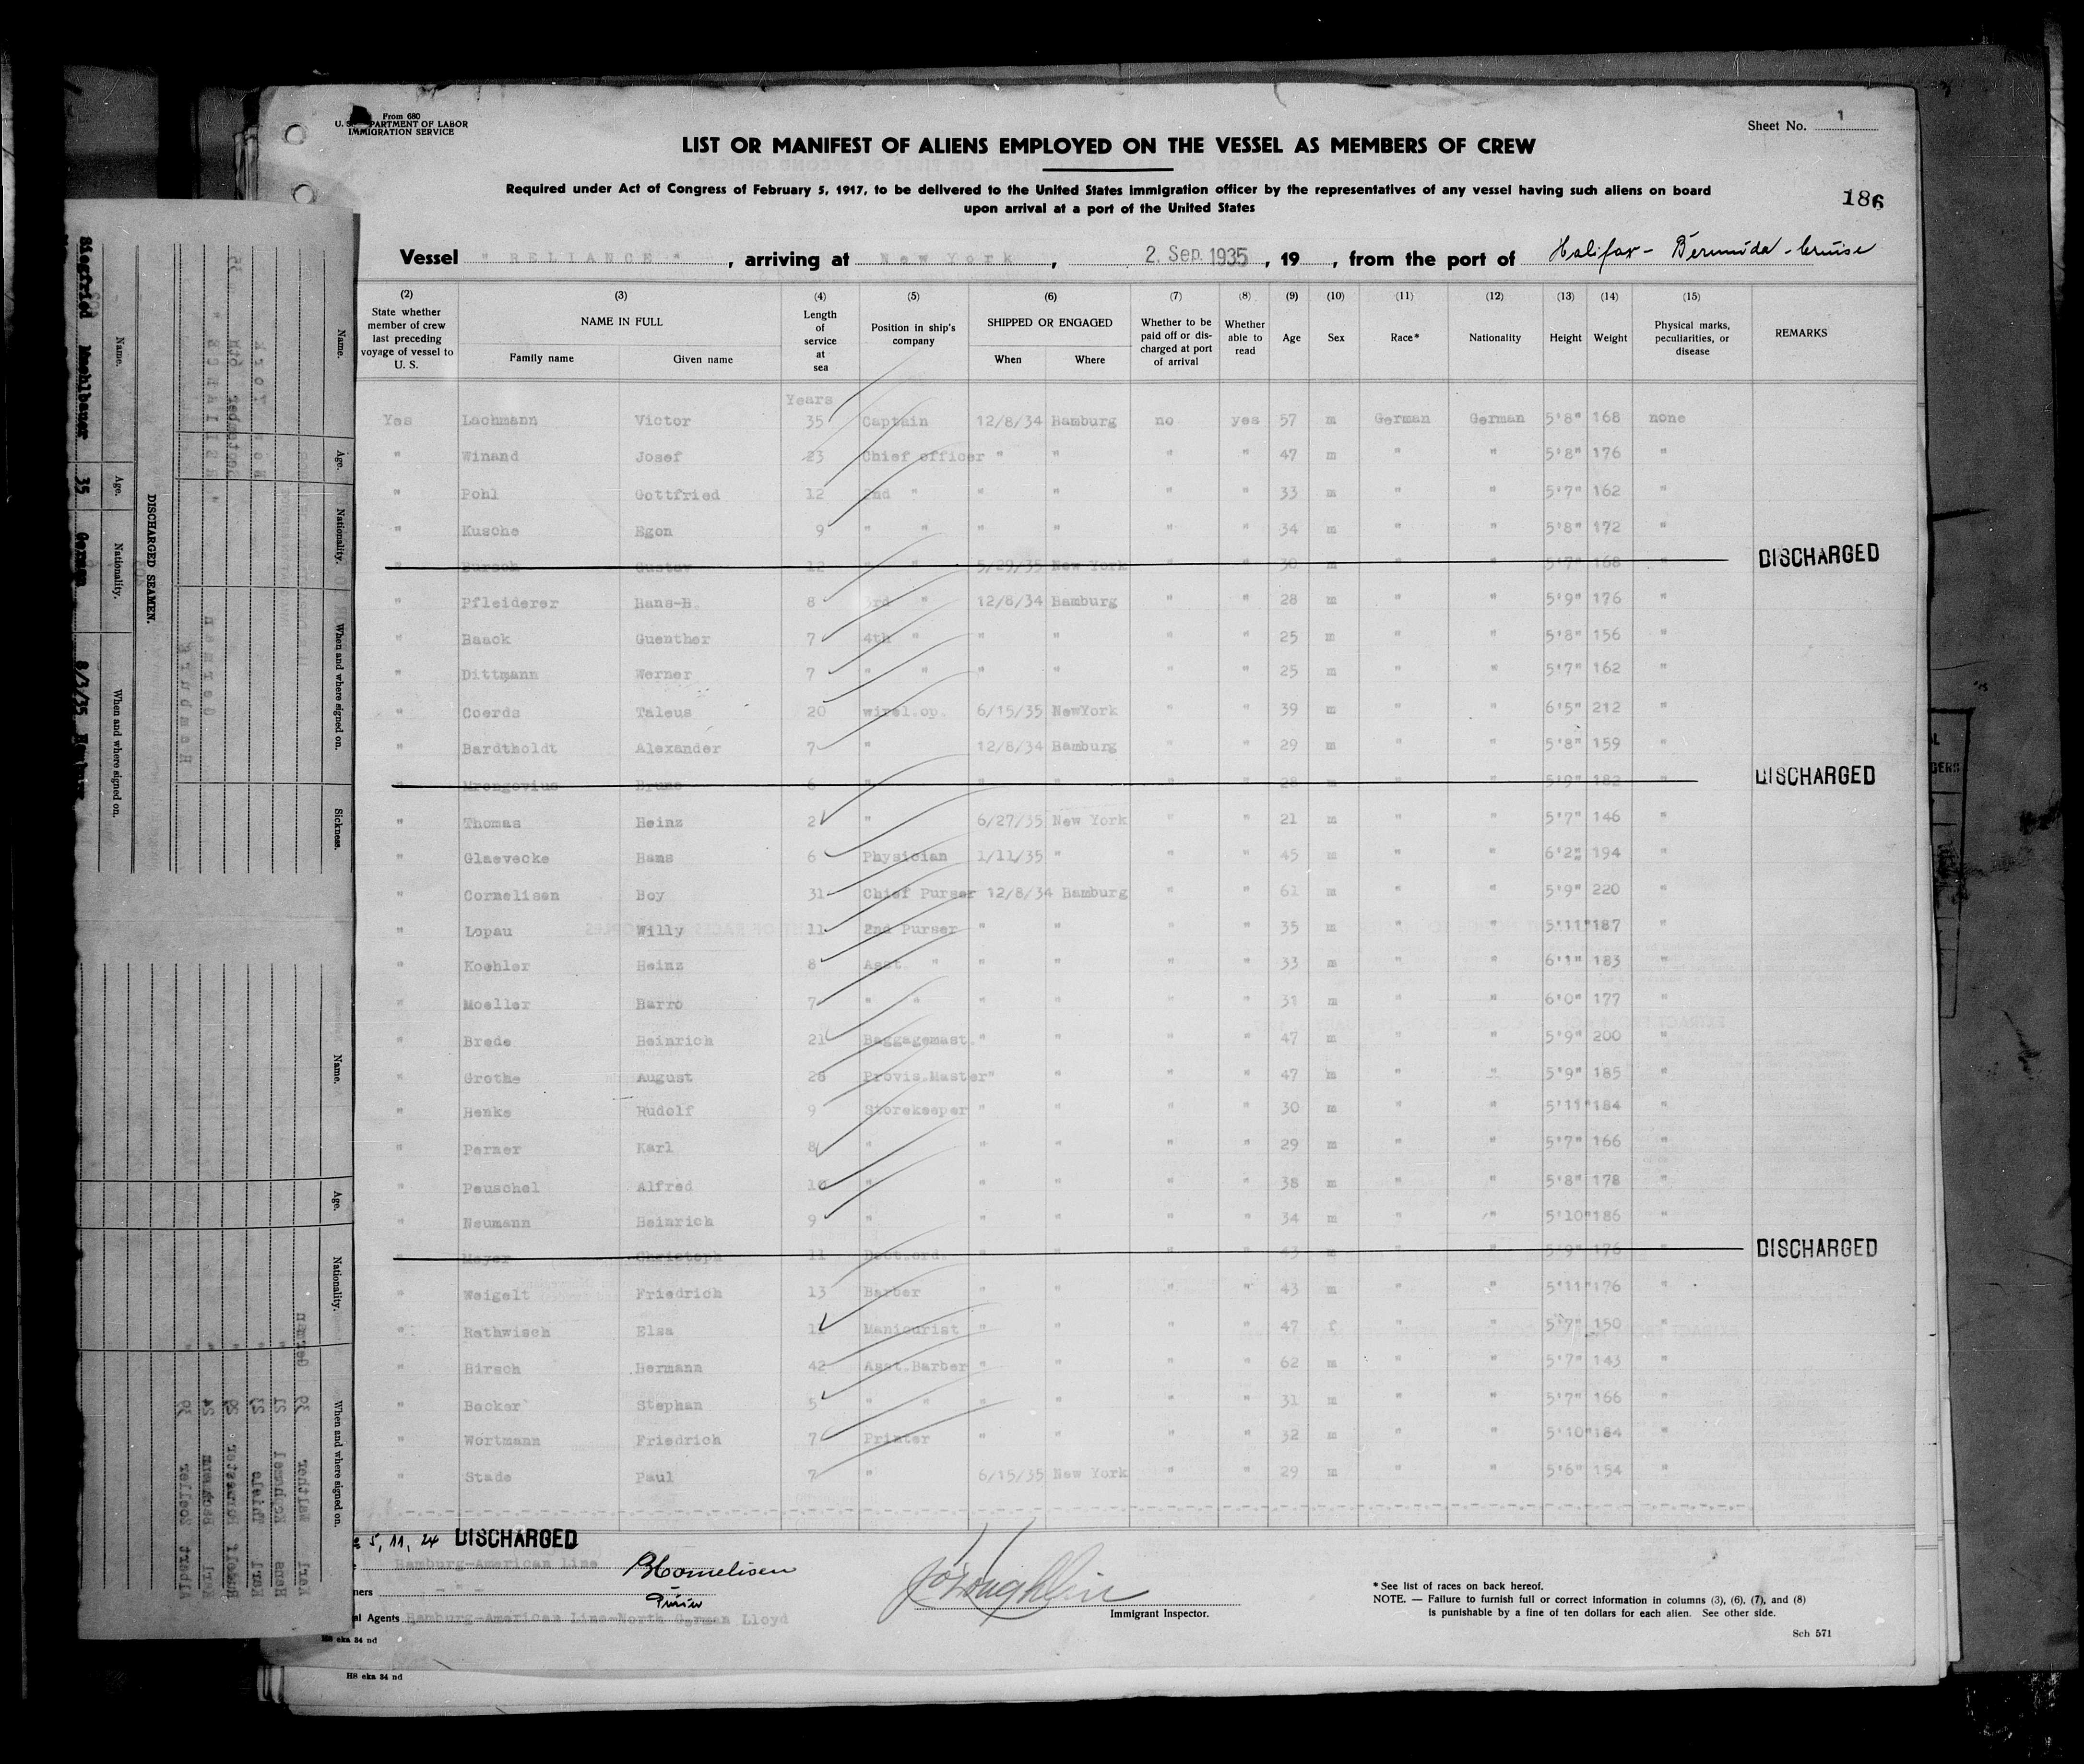 From 680
U. S. DEPARTMENT OF LABOR
IMMIGRATION SERVICE
Sheet No. 1
LIST OR MANIFEST OF ALIENS EMPLOYED ON THE VESSEL AS MEMBERS OF CREW
Required under Act of Congress of February 5, 1917, to be delivered to the United States immigration officer by the representatives of any vessel having such aliens on board
upon arrival at a port of the United States
186
Vessel " RELIANCE ", arriving at New York, 2. Sep. 1935, 19 , from the port of Halifax - Bermuda - Cruise
(2) (3) (4) (5) (6) (7) (8) (9) (10) (11) (12) (13) (14) (15)
State whether member of crew last preceding voyage of vessel to U. S. NAME IN FULL Family name Given name Length of service at sea Position in ship's company SHIPPED OR ENGAGED When Where Whether to be paid off or discharged at port of arrival Whether able to read Age Sex Race* Nationality Height Weight Physical marks, peculiarities, or disease REMARKS
Years
Yes Lachmann Victor 35 Captain 12/8/34 Hamburg no yes 57 m German German 5'8" 168 none
" Winand Josef 23 Chief officer " " " " 47 m " " 5'8" 176 "
" Pohl Gottfried 12 2nd " " " " " 33 m " " 5'7" 162 "
" Kusche Egon 9 " " " " " " 34 m " " 5'8" 172 "
" Bursch Gustav 12 " " 5/29/35 New York " " 30 m " " 5'7" 168 " DISCHARGED
" Pfleiderer Hans-H. 8 3rd " 12/8/34 Hamburg " " 28 m " " 5'9" 176 "
" Baack Guenther 7 4th " " " " " 25 m " " 5'8" 156 "
" Dittmann Werner 7 " " " " " " 25 m " " 5'7" 162 "
" Coerds Taleus 20 wirel.op. 6/15/35 NewYork " " 39 m " " 6'5" 212 "
" Bardtholdt Alexander 7 " 12/8/34 Hamburg " " 29 m " " 5'8" 159 "
" Mrongovius Bruno 6 " " " " " 28 m " " 5'9" 182 " DISCHARGED
" Thomas Heinz 2 " 6/27/35 New York " " 21 m " " 5'7" 146 "
" Glaevecke Hans 6 Physician 1/11/35 " " " 45 m " " 6'2" 194 "
" Cornelisen Boy 31 Chief Purser 12/8/34 Hamburg " " 61 m " " 5'9" 220 "
" Lopau Willy 11 2nd Purser " " " " 35 m " " 5'11" 187 "
" Koehler Heinz 8 Asst. " " " " " 33 m " " 6'1" 183 "
" Moeller Harro 7 " " " " " " 31 m " " 6'0" 177 "
" Brede Heinrich 21 Baggagemast. " " " " 47 m " " 5'9" 200 "
" Grothe August 28 Provis.Master " " " " 47 m " " 5'9" 185 "
" Henke Rudolf 9 Storekeeper " " " " 30 m " " 5'11" 184 "
" Perner Karl 8 " " " " " 29 m " " 5'7" 166 "
" Peuschel Alfred 10 " " " " " 38 m " " 5'8" 178 "
" Neumann Heinrich 9 " " " " " 34 m " " 5'10" 186 "
" Meyer Christoph 11 " " " " 43 m " " 5'9" 176 " DISCHARGED
" Weigelt Friedrich 13 Barber " " " " 43 m " " 5'11" 176 "
" Rathwisch Elsa Manicurist " " " " 47 f " " 5'7" 150 "
" Hirsch Hermann 42 Asst.Barber " " " " 62 m " " 5'7" 143 "
" Becker Stephan 5 " " " " " " 31 m " " 5'7" 166 "
" Wortmann Friedrich 7 Printer " " " " 32 m " " 5'10" 184 "
" Stade Paul 7 " 6/15/35 New York " " 29 m " " 5'6" 154 "
5, 11, 24 DISCHARGED
Hamburg-American Line
BHCornelisen
Purser
ners - " -
al Agents Hamburg-American Line-North German Lloyd
JO'Loughlin
Immigrant Inspector.
* See list of races on back hereof.
NOTE. — Failure to furnish full or correct information in columns (3), (6), (7), and (8)
is punishable by a fine of ten dollars for each alien. See other side.
Sch 571
H8 eka 34 nd
H8 eka 34 nd
DISCHARGED SEAMEN.
Name. Age. Nationality. When and where signed on.
Siegfried Muehlbauer 35 German 8/3/35 Hamburg
Name. Age. Nationality. When and where signed on. Sickness.
Name. Age. Nationality. When and where signed on.